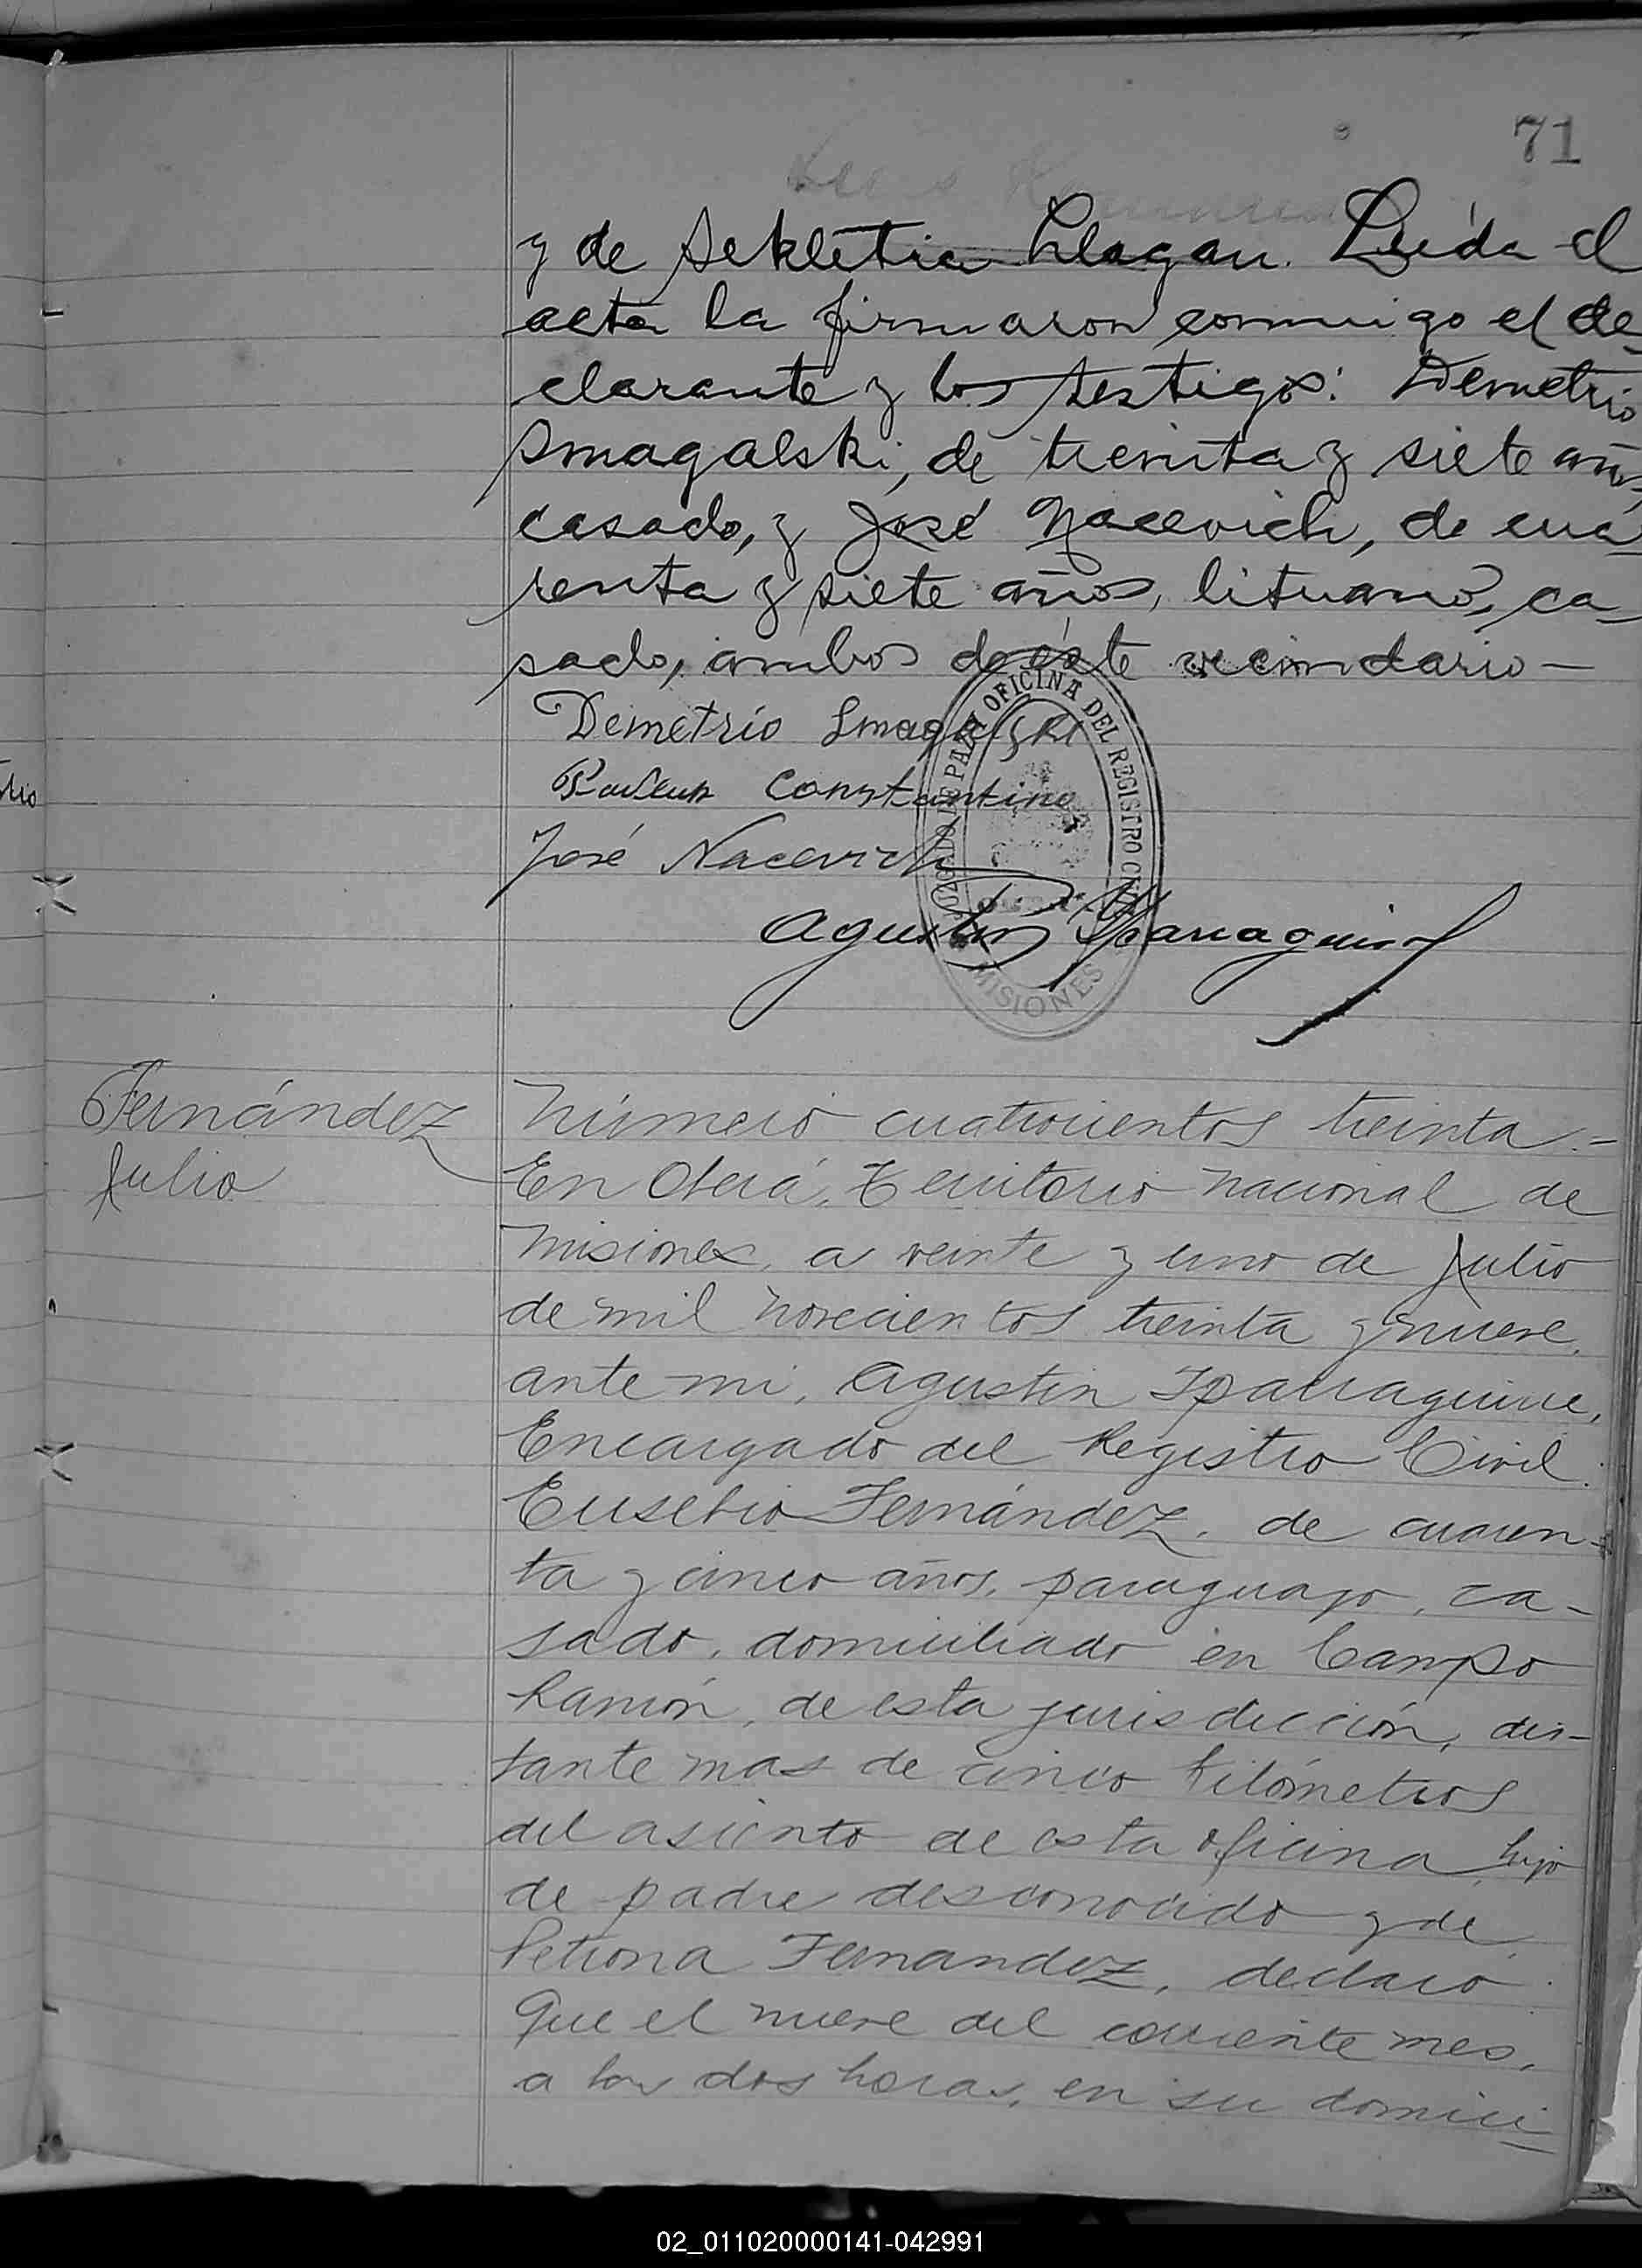 71
y de Sekletia Hlagan. Leída el
acta la firmaron conmigo el de-
clarante y los testigos: Demetrio
Smagalski, de treinta y siete años,
casado, y José Nacevich, de cua-
renta y siete años, lituano, ca-
sado, ambos de éste vecindario—
Demetrio Smagalski
Constantino
José Nacevich
JUZGADO DE PAZ Y OFICINA DEL REGISTRO CIVIL
MISIONES
Agustín Iparraguirre
Fernández
Julio
Número cuatrocientos treinta.-
En Oberá, Territorio Nacional de
Misiones, a veinte y uno de Julio
de mil novecientos treinta y nueve,
ante mi, Agustín Iparraguirre,
Encargado del Registro Civil.
Eusebio Fernández, de cuaren-
ta y cinco años, paraguayo, ca-
sado, domiciliado en Campo
Ramón, de esta jurisdicción, dis-
tante mas de cinco kilómetros
del asiento de esta oficina, hijo
de padre desconocido y de
Petrona Fernandez, declaró:
Que el nueve del corriente mes,
a las dos horas, en su domici-
02_011020000141-042991